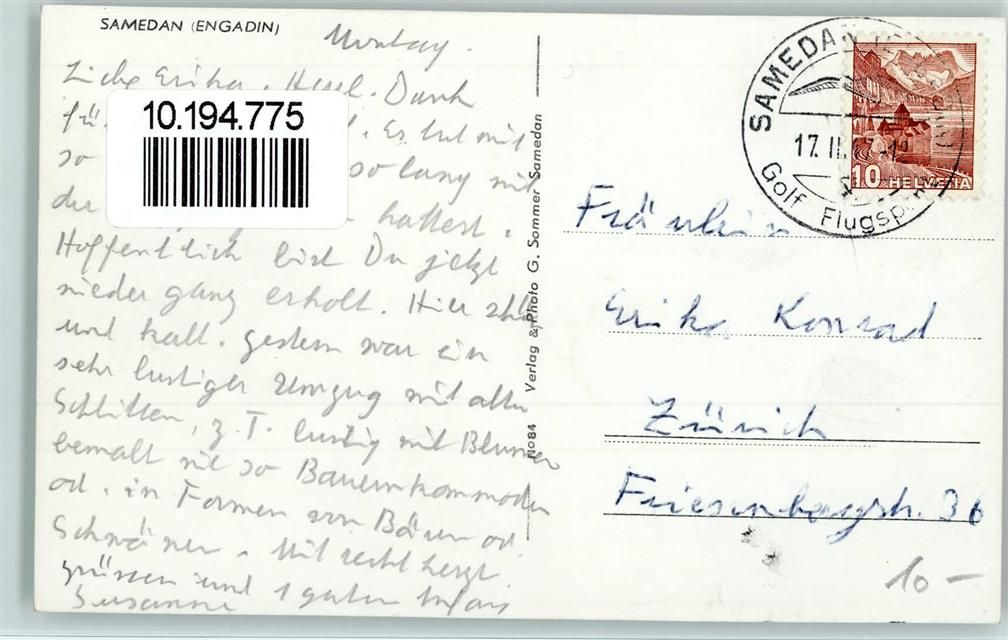 SAMEDAN (ENGADIN)
Montag.
Liebe Erika. Herzl. Dank
für
10.194.775
. Es tut mir
so so lang mit
der hattest.
Hoffentlich bist Du jetzt
wieder ganz erholt. Hier
und kalt. gestern war ein
sehr lustiger Umzug mit alten
Schlitten, z. T. lustig mit Blumen
bemalt wie so Bauernkommoden
od. in Formen von Bären od.
Schwänen. Mit recht herzl.
grüssen und 1 guten
Susanne
No 84 Verlag & Photo G. Sommer Samedan
SAMEDAN
17. II. 47.-1
Golf Flugsp
10 HELVETIA
Fräulein
Erika Konrad
Zürich
Friesenbergstr. 36
10 –